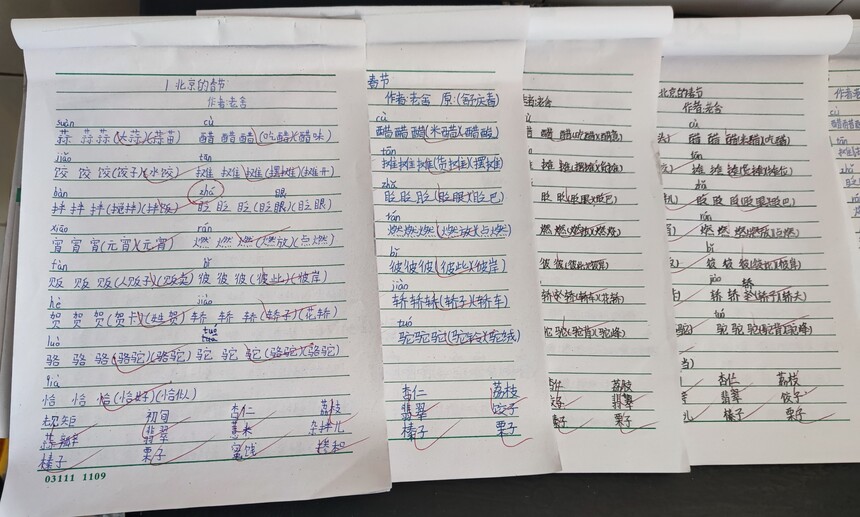 1 北京的春节
作者老舍
suàn cù
蒜 蒜 蒜(大蒜)(蒜苗) 醋 醋 醋(吃醋)(醋味)
jiǎo tān
饺 饺 饺(饺子)(水饺) 摊 摊 摊(摆摊)(摊开)
bàn zhǎ 眼
拌 拌 拌(搅拌)(拌饭) 眨 眨 眨(眨眼)(眨眼)
xiāo rán
宵 宵 宵(元宵)(元宵) 燃 燃 燃(燃放)(点燃)
fàn bǐ
贩 贩 贩(人贩子)(贩卖) 彼 彼 彼(彼此)(彼岸)
hè jiào
贺 贺 贺(贺卡)(祝贺) 轿 轿 轿(轿子)(花轿)
luò tuó
骆 骆 骆(骆驼)(骆驼) 驼 驼 驼(骆驼)(骆驼)
qià
恰 恰 恰(恰好)(恰似)
规矩 初旬 杏仁 荔枝
蒜瓣 翡翠 薏米 杂拌儿
榛子 栗子 掺和
03111 1109
春节
作者:老舍 原:(舒庆春)
cù
醋醋醋(米醋)(醋酸)
tān
摊摊摊(货摊)(摆摊)
zhǎ
眨 眨 眨(眨眼)(眨巴)
rán
燃燃燃(燃放)(点燃)
bǐ
彼彼彼(彼此)(彼岸)
jiào
轿轿轿(轿子)(轿车)
tuó
驼驼驼(驼铃)(驼绒)
杏仁 荔枝
翡翠 饺子
榛子 栗子
者:老舍
醋 醋(吃醋)
眨 眨(眨眼)(眨巴)
燃 燃(燃放)(燃烧)
彼(彼此)(彼岸)
轿 轿(轿车)(花轿)
驼(驼背)(驼峰)
杏仁 荔枝
翡翠
子 栗子
北京的春节
作者:老舍
醋 醋 醋(米醋)(吃醋)
tān
摊 摊 摊
zhǎ
眨 眨 眨(眨眼)(眨巴)
rán
燃 燃 燃(燃放)(点燃)
bǐ
彼 彼 彼(彼此)(彼岸)
jiào 轿
轿 轿(轿子)(轿夫)
tuó
驼 驼 驼(驼背)(驼峰)
杏仁 荔枝
翡翠 饺子
儿 榛子 栗子
作者:老